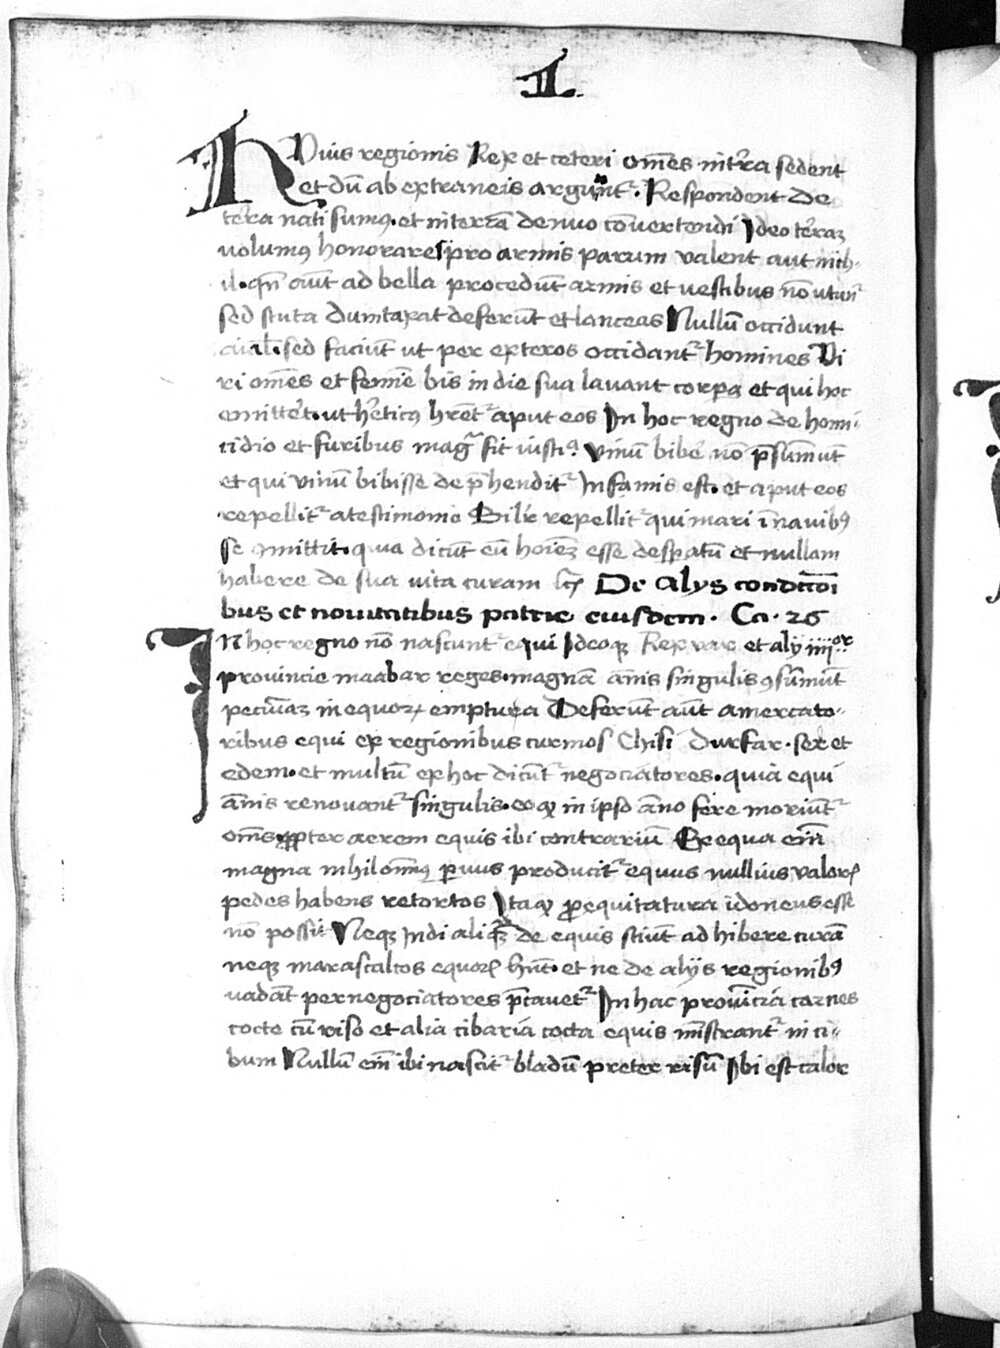 II
Huius regionis Rex et ceteri om̄es in t̄ra sedent
et dū ab extraneis arguūt᷑. Respondent De
terra nati sumꝰ. et in terrā denuo cōuertendi Ideo terrā
uolumꝰ honorare pro armis parum valent aut nich-
il. qn̄ aūt ad bella procedūt armis et uestibus nō utūt᷑
sed scuta dumtaxat deferūt et lanceas Nullū occidunt
aīal. sed faciūt ut per exteros occidant᷑ homines Vi
ri om̄es et femīe bis in die sua lavant corpa et qui hoc
omitteret. ut hēticꝰ hret᷑ aput eos In hoc regno de homi-
cidio et furibus magͣ fit iusticia vinū bibere nō p̄sumūt
et qui vinū bibisse dep̄hendit᷑ Infamis est. et aput eos
repellit᷑ a testimonio Silīr repellit᷑ qui mari ī nauibꝰ
se ꝯmittit. quia dicūt eū hoīem esse desp̱atū et nullam
habere de sua uita curam De alys condicōi
bus et nouitatibus patrie eiusdem. Ca. 26
In hoc regno nō nascunt᷑ equi Ideoqꝫ Rex var et aly iiijor
prouincie maabar reges. magnā annis singulis ꝯsumūt
pecūiaꝫ in equorꝫ emptura Deferūt᷑ aūt a mercato-
ribus equi ex regionibus curmos Chisi Durfar. ser et
edem. et multū ex hoc dicūt᷑ negociatores. quia equi
ānis renouant᷑ singulis. eo ꝙ in ipso anno fere moriūt᷑
om̄s ꝓpter aerem equis ibi contrariū Ex equa enī
magna nihilomīꝰ paruus producit᷑ equus nullius valorꝭ
pedes habens retortos Itaqꝫ ꝓ equitatura idoneus esse
nō possit Neqꝫ Indi aliqͣꝫ de equis sciūt adhibere curā
neqꝫ marascalcos equorꝫ hn̄t. et ne de alijs regionibꝰ
uadāt per negociatores p̄cauet᷑ In hac prouīcia carnes
cocte cū riso et alia cibaria cocta equis mīstrant᷑ in ci-
bum Nullū enī ibi nascit᷑ bladū preter risū Ibi est calor